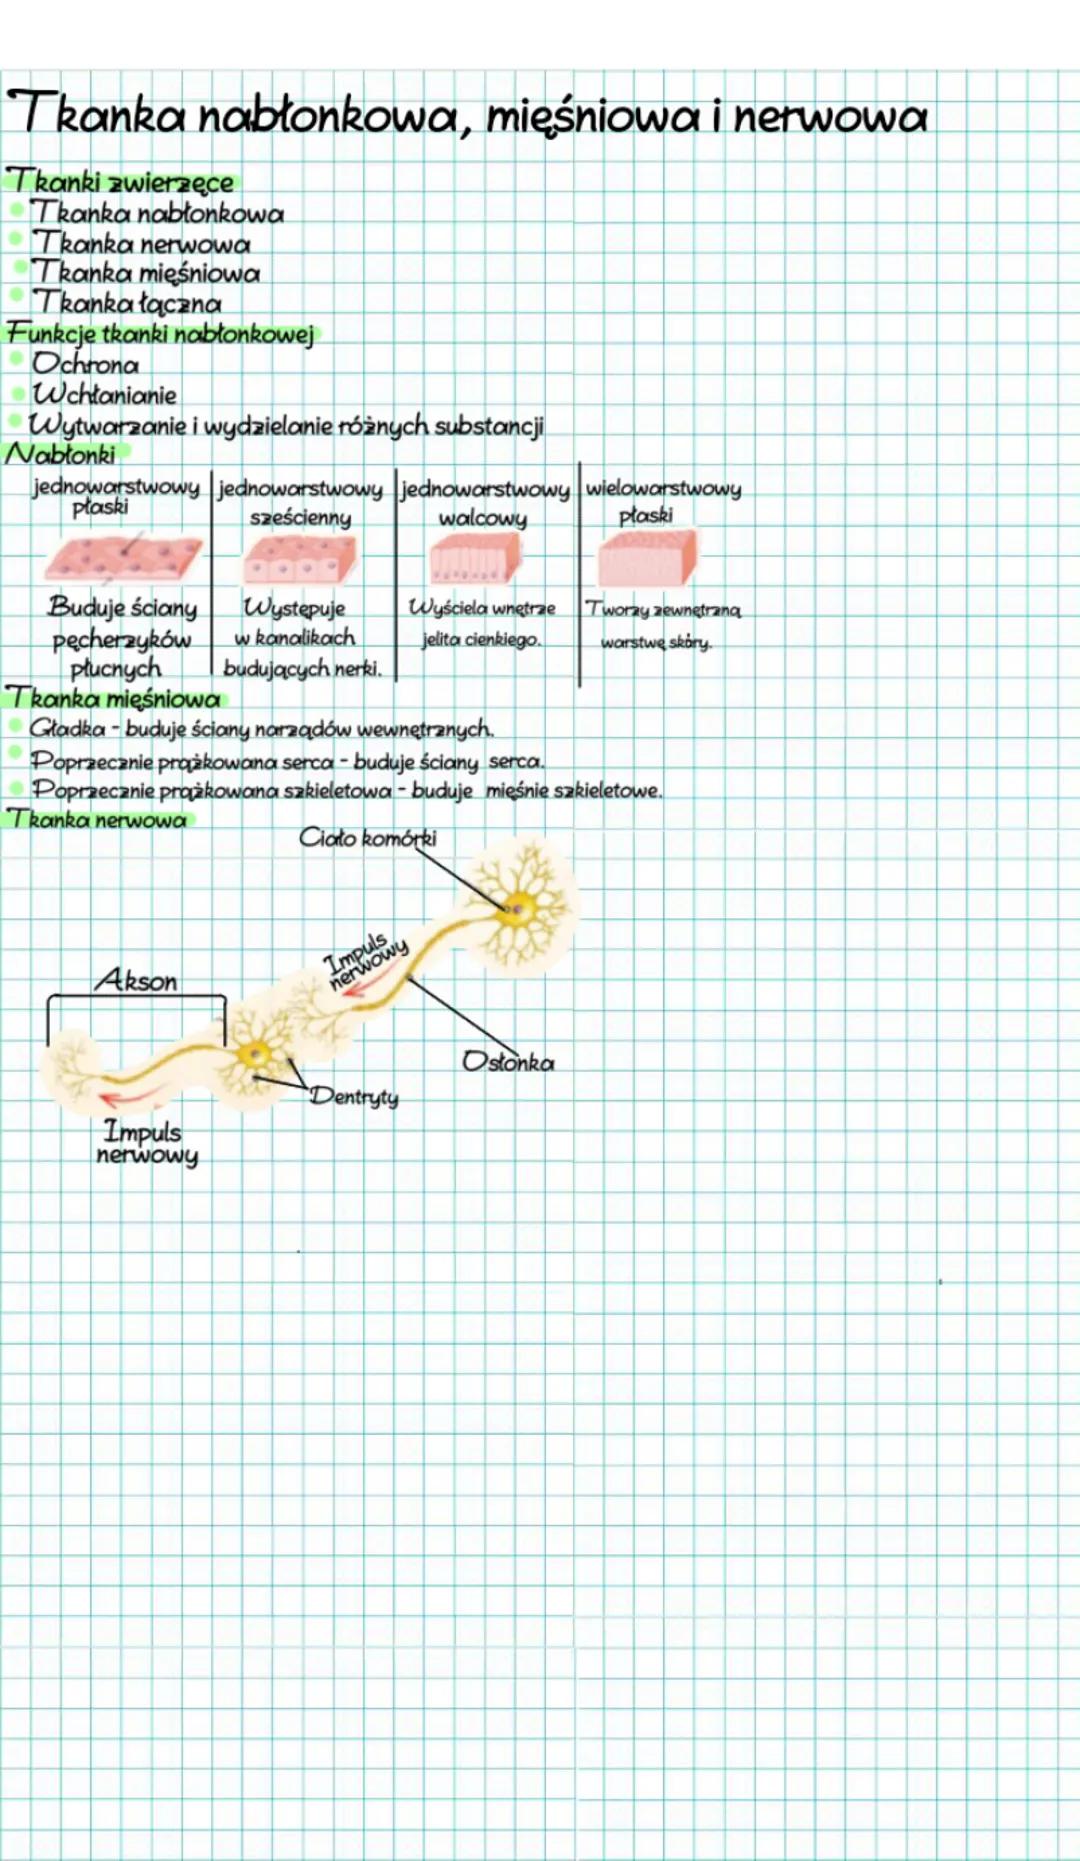 Tkanka nabłonkowa, mięśniowa i nerwowa
Tkanki zwierzęce
Tkanka nabłonkowa
Tkanka nerwowa
Tkanka mięśniowa
Tkanka łączna
Funkcje tkanki nabłonkowej
Ochrona
Wchłanianie
Wytwarzanie i wydzielanie różnych substancji
Nabłonki
jednowarstwowy
płaski
Buduje ściany
pęcherzyków
płucnych
jednowarstwowy
sześcienny
Występuje
w kanalikach
budujących nerki.
jednowarstwowy
walcowy
Wyściela wnętrze
jelita cienkiego.
wielowarstwowy
płaski
Tworzy zewnętrzną
warstwę skóry.
Tkanka mięśniowa
Gładka - buduje ściany narządów wewnętrznych.
Poprzecznie prążkowana serca - buduje ściany serca.
Poprzecznie prążkowana szkieletowa - buduje mięśnie szkieletowe.
Tkanka nerwowa
Ciało komórki
Impuls
nerwowy
Akson
Osłonka
Dentryty
Impuls
nerwowy